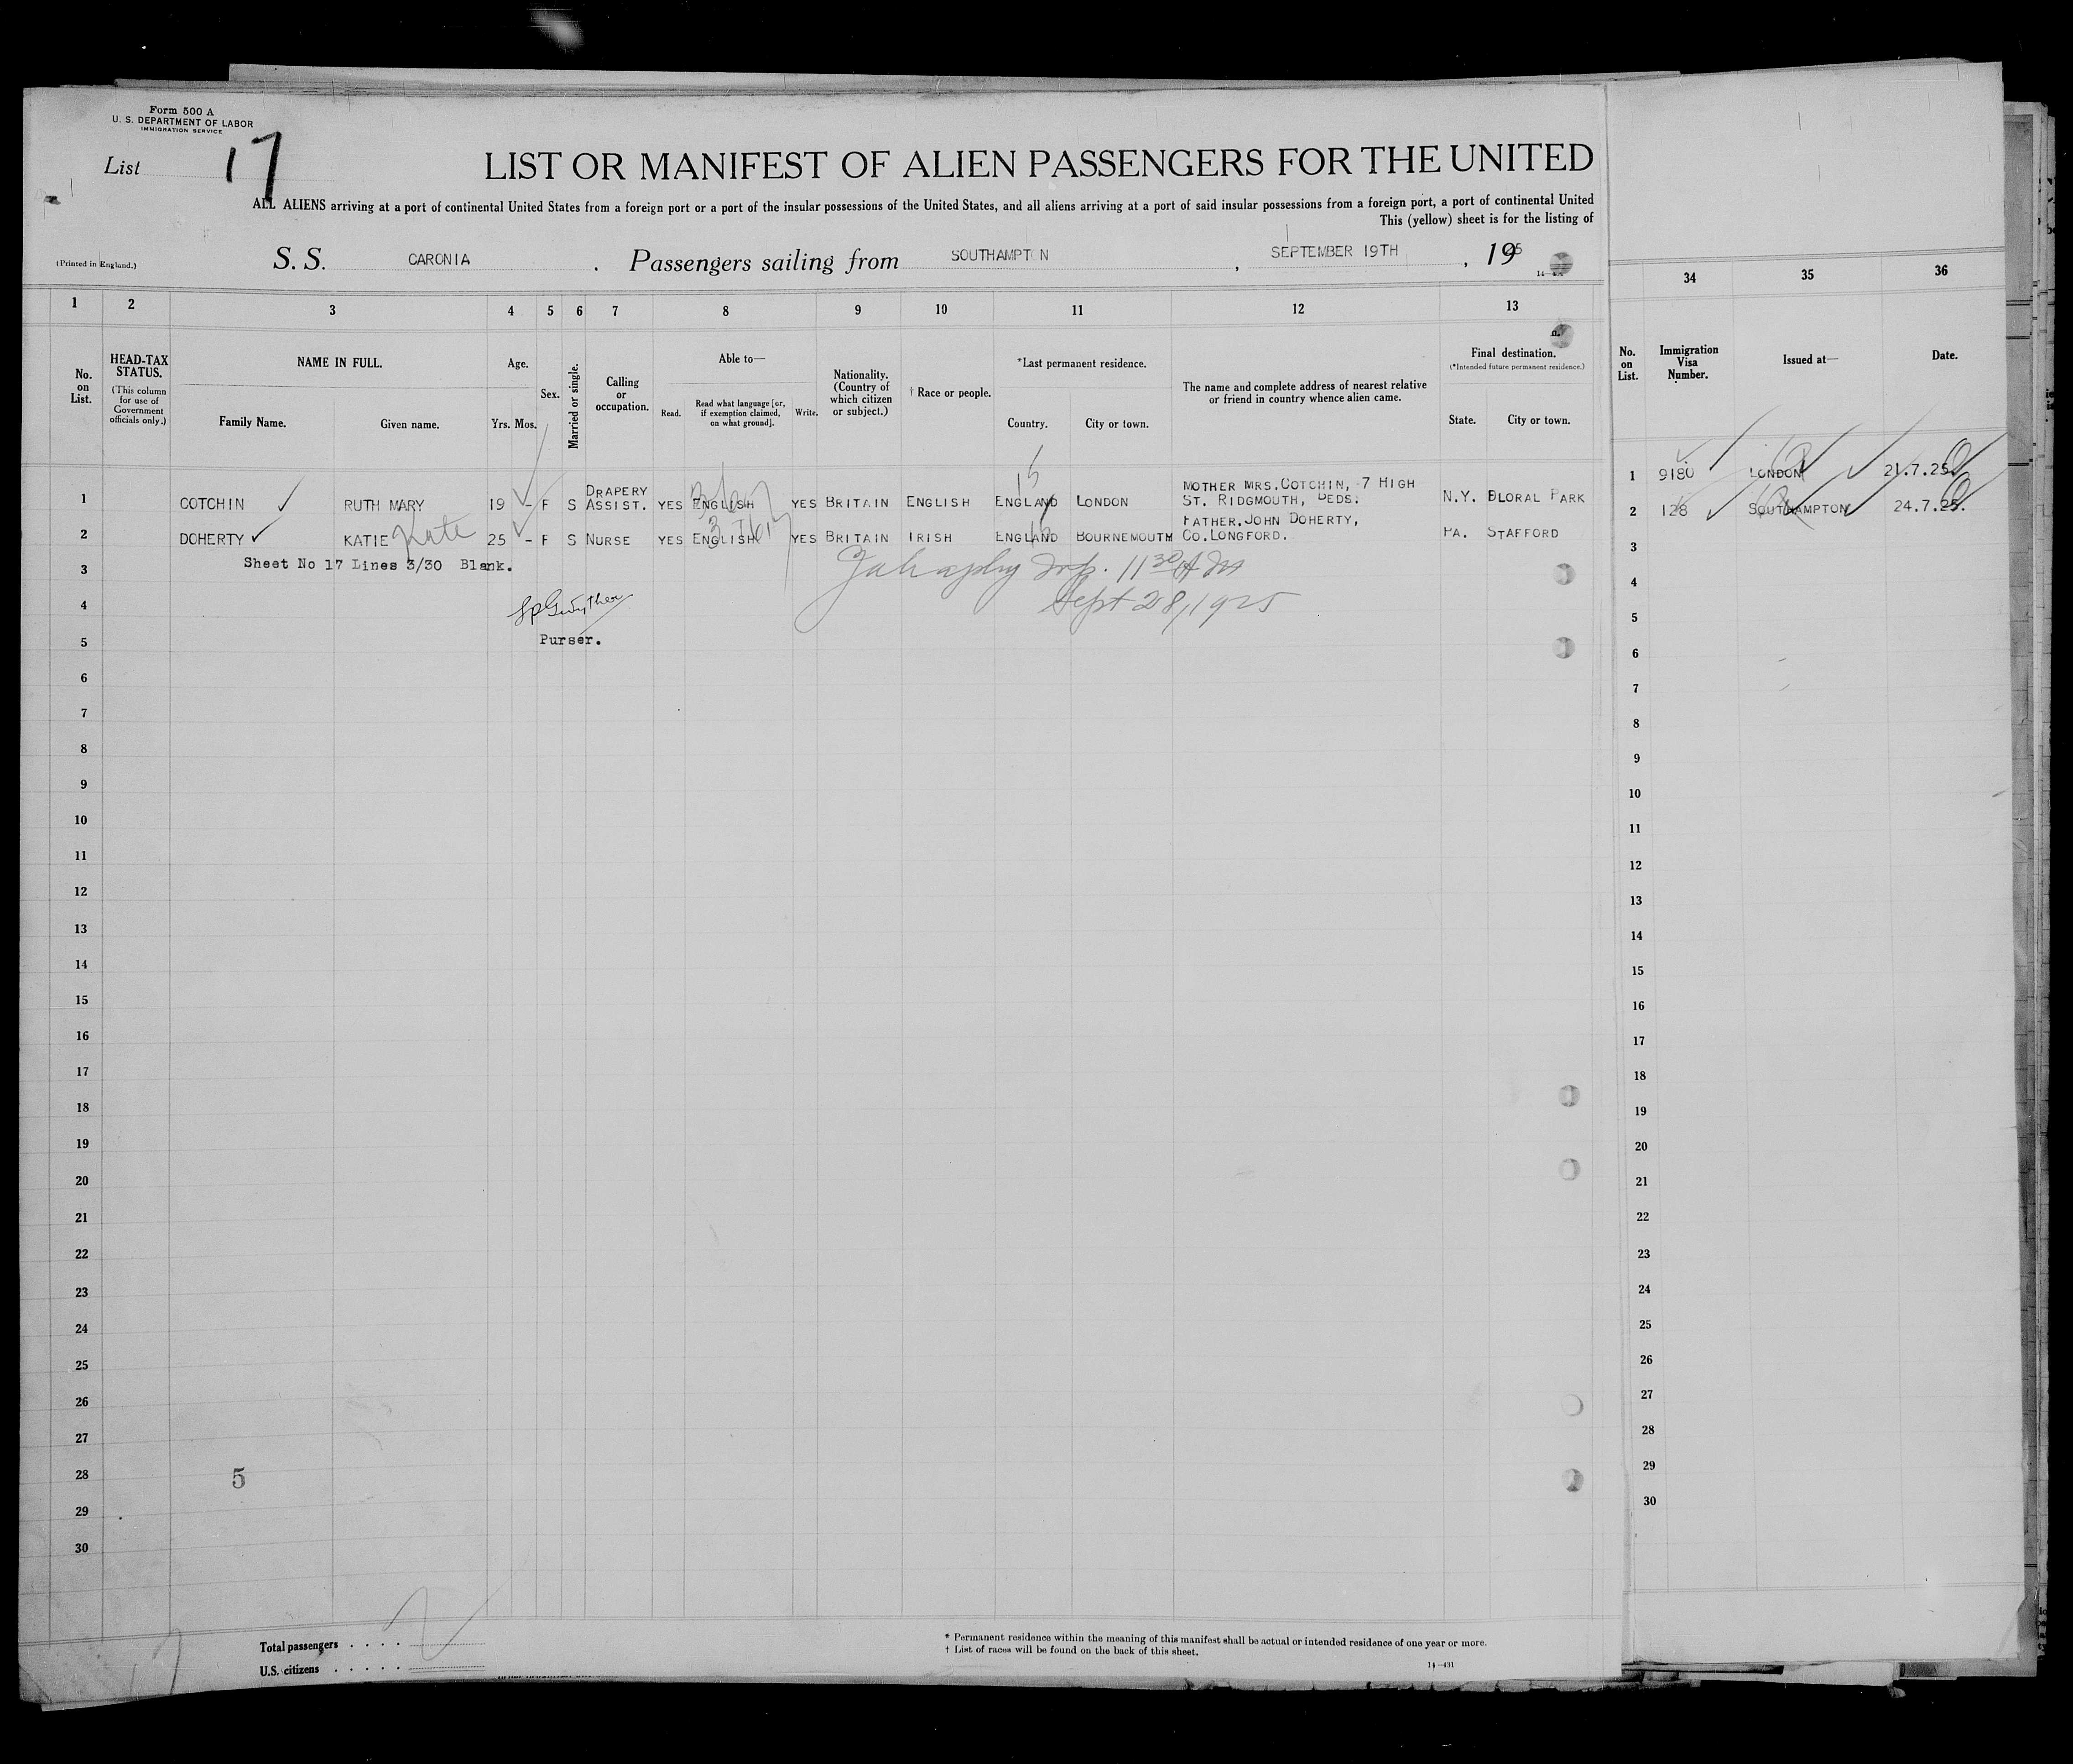 Form 500 A
U. S. DEPARTMENT OF LABOR
IMMIGRATION SERVICE
List 17
LIST OR MANIFEST OF ALIEN PASSENGERS FOR THE UNITED
ALL ALIENS arriving at a port of continental United States from a foreign port or a port of the insular possessions of the United States, and all aliens arriving at a port of said insular possessions from a foreign port, a port of continental United
This (yellow) sheet is for the listing of
(Printed in England.)
S. S. CARONIA . Passengers sailing from SOUTHAMPTON , SEPTEMBER 19TH , 1925
1 2 3 4 5 6 7 8 9 10 11 12 13 34 35 36
No. on List.
HEAD-TAX STATUS.
(This column for use of Government officials only.)
NAME IN FULL.
Family Name. Given name.
Age.
Yrs. Mos.
Sex.
Married or single.
Calling or occupation.
Able to—
Read. Read what language [or, if exemption claimed, on what ground]. Write.
Nationality. (Country of which citizen or subject.)
† Race or people.
*Last permanent residence.
Country. City or town.
The name and complete address of nearest relative or friend in country whence alien came.
Final destination.
(*Intended future permanent residence.)
State. City or town.
No. on List.
Immigration Visa Number.
Issued at—
Date.
1 COTCHIN RUTH MARY 19 - F S DRAPERY ASSIST. YES ENGLISH YES BRITAIN ENGLISH ENGLAND LONDON MOTHER MRS.COTCHIN, 7 HIGH ST. RIDGMOUTH, BEDS. N.Y. BLORAL PARK 1 9180 LONDON 21.7.25
2 DOHERTY KATIE Kate 25 - F S NURSE YES ENGLISH YES BRITAIN IRISH ENGLAND BOURNEMOUTH FATHER.JOHN DOHERTY, CO.LONGFORD. PA. STAFFORD 2 128 SOUTHAMPTON 24.7.25.
3 Sheet No 17 Lines 3/30 Blank. 3
4 Sept 28, 1925 4
5 Purser. 5
6 6
7 7
8 8
9 9
10 10
11 11
12 12
13 13
14 14
15 15
16 16
17 17
18 18
19 19
20 20
21 21
22 22
23 23
24 24
25 25
26 26
27 27
28 5 28
29 29
30 30
Total passengers . . . . 2
U.S. citizens . . . . .
* Permanent residence within the meaning of this manifest shall be actual or intended residence of one year or more.
† List of races will be found on the back of this sheet.
14—431